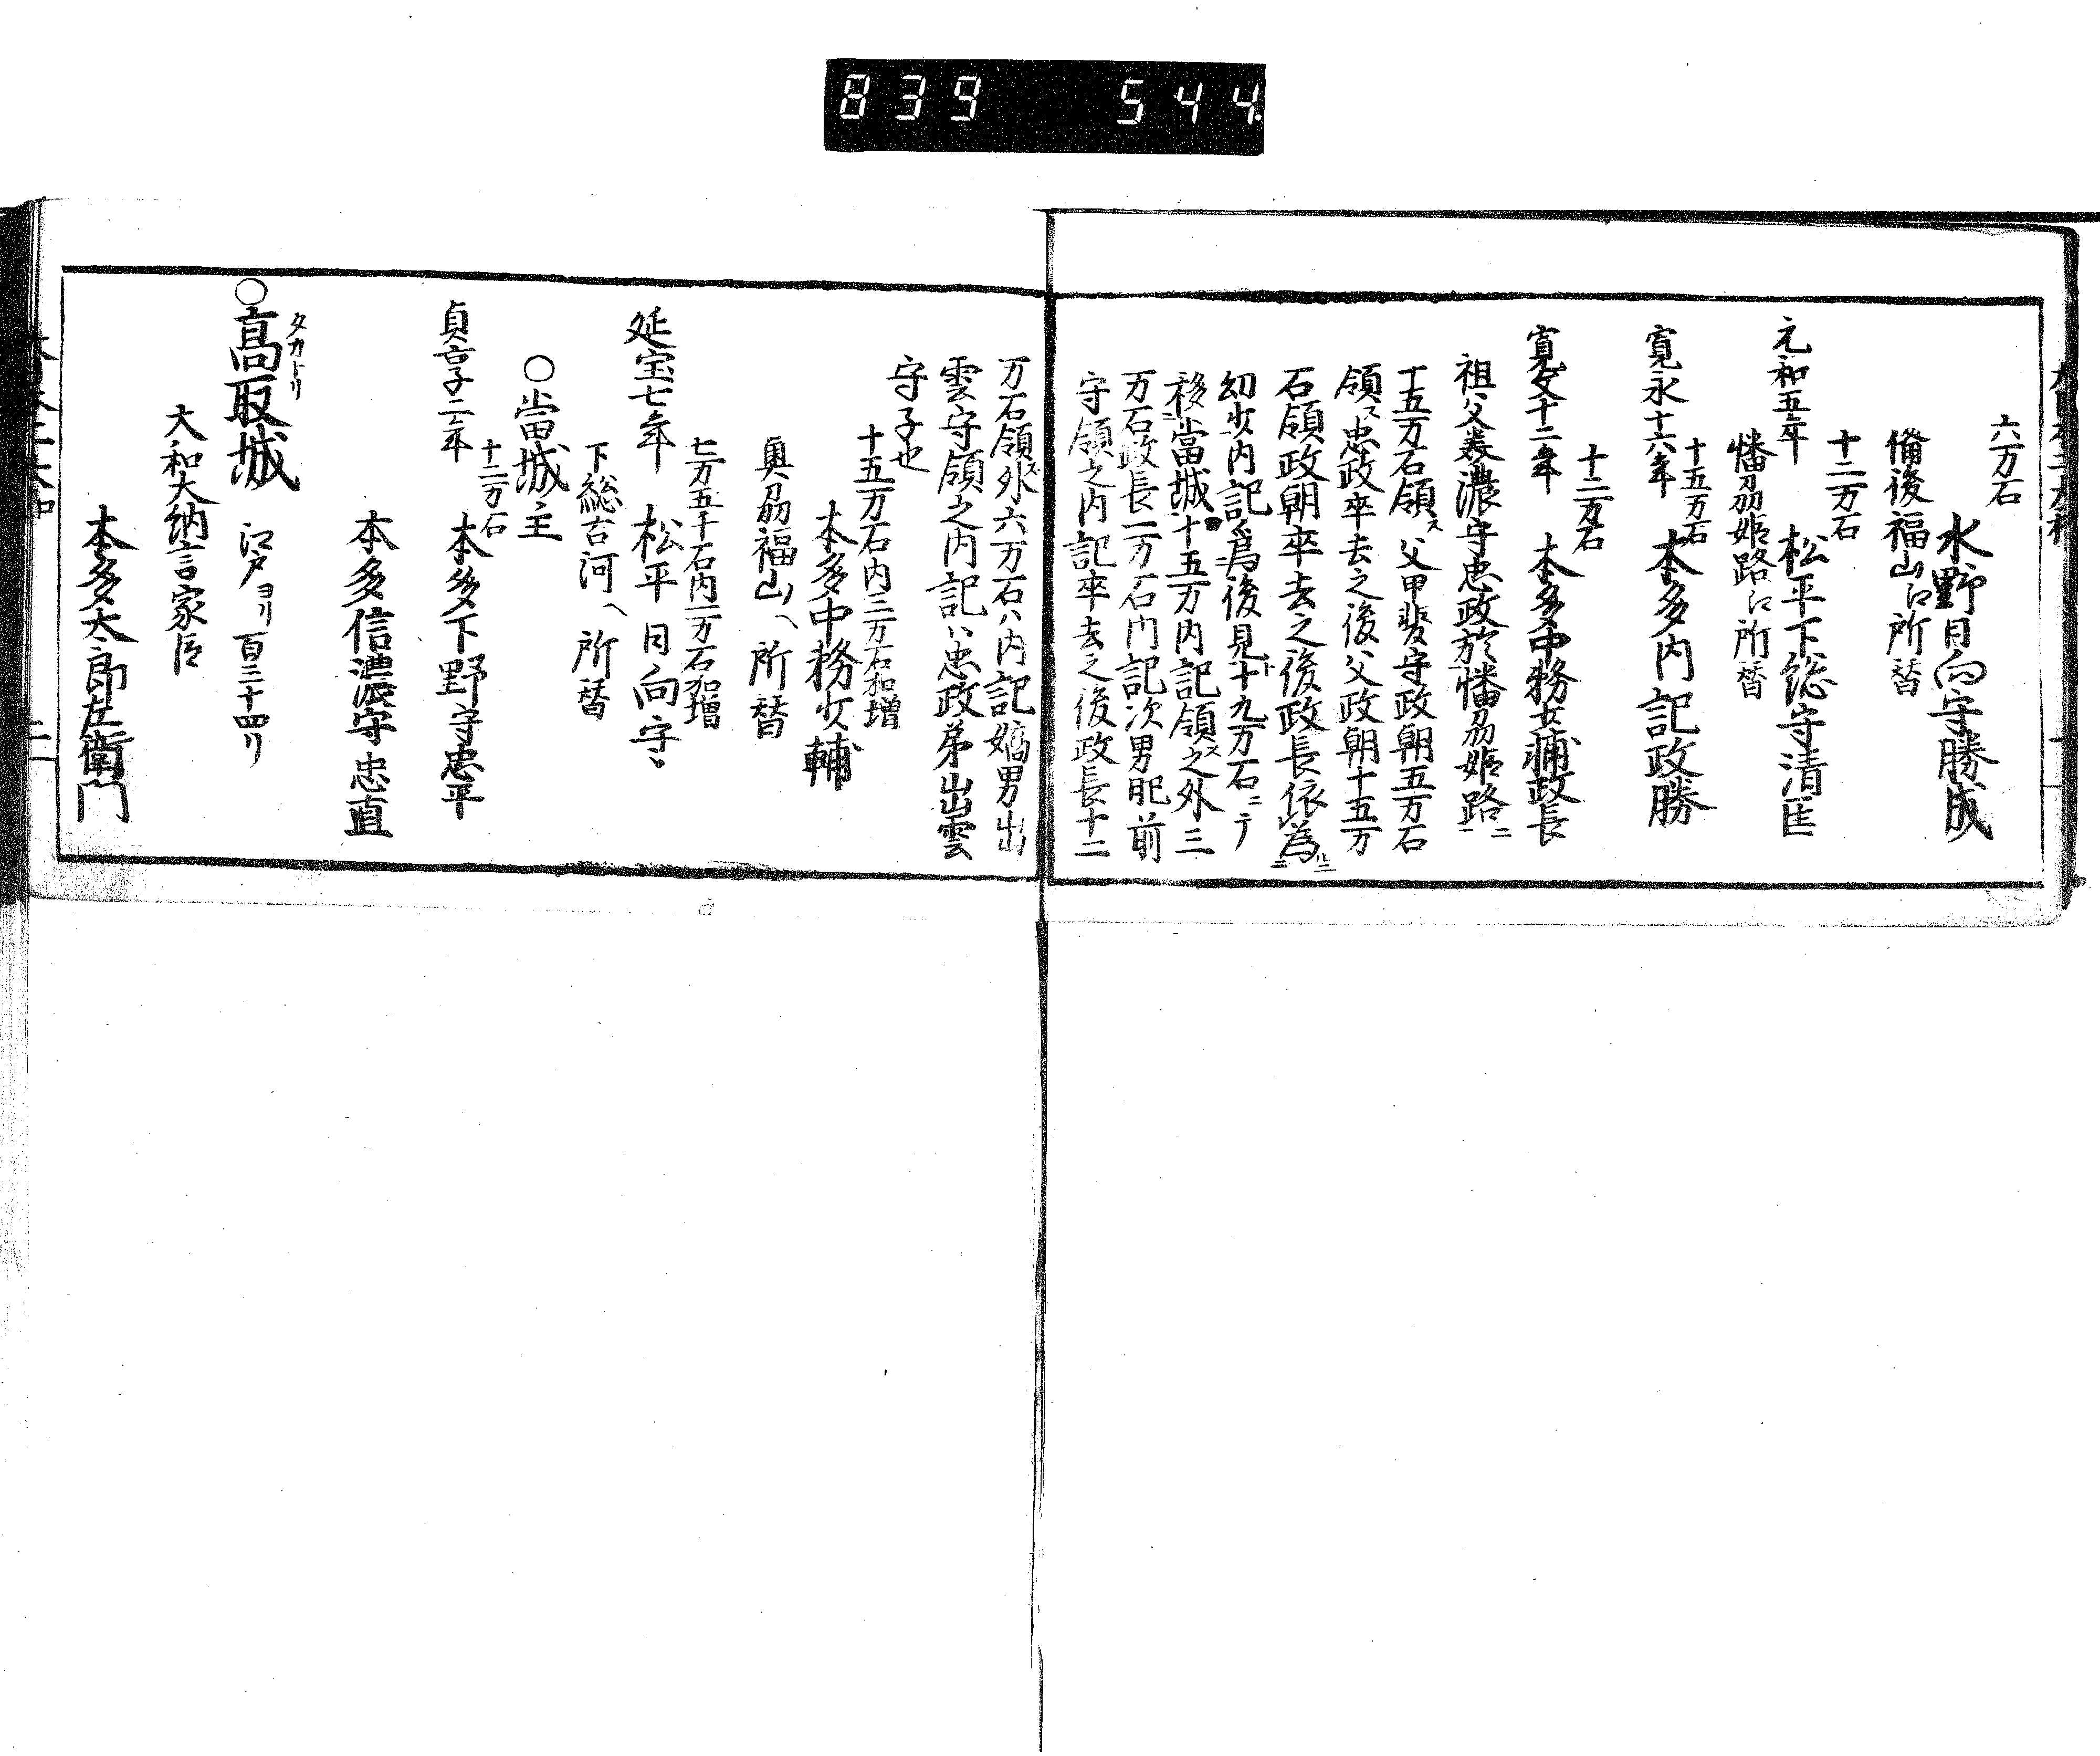 839 544.
六万石
水野日向守勝成
備後福山江所替
十二万石
元和五年 松平下総守清匡
幡刕姫路江所替
十五万石
寛永十六年 本多内記政勝
十二万石
寛文十二年 本多中務少輔政長
祖父美濃守忠政於幡刕姫路ニ
十五万石領ス父甲斐守政朝五万石
領ス忠政卒去之後父政朝十五万
石領政朝卒去之後政長依為
幼少内記為後見十九万石ニテ
移當城十五万内記領ス之外三
万石政長二万石内記次男肥前
守領之内記卒去之後政長十二
万石領ス外六万石ハ内記嫡男出
雲守領之内記ハ忠政弟出雲
守子也
十五万石内三万石加増
本多中務少輔
奥刕福山ヘ所替
七万五千石内一万石加増
延宝七年 松平日向守
下総古河ヘ所替
○當城主
十二万石
貞享二年 本多下野守忠平
本多信濃守忠直
タカトリ
○高取城 江戸ヨリ百三十四リ
大和大納言家臣
本多太郎左衛門